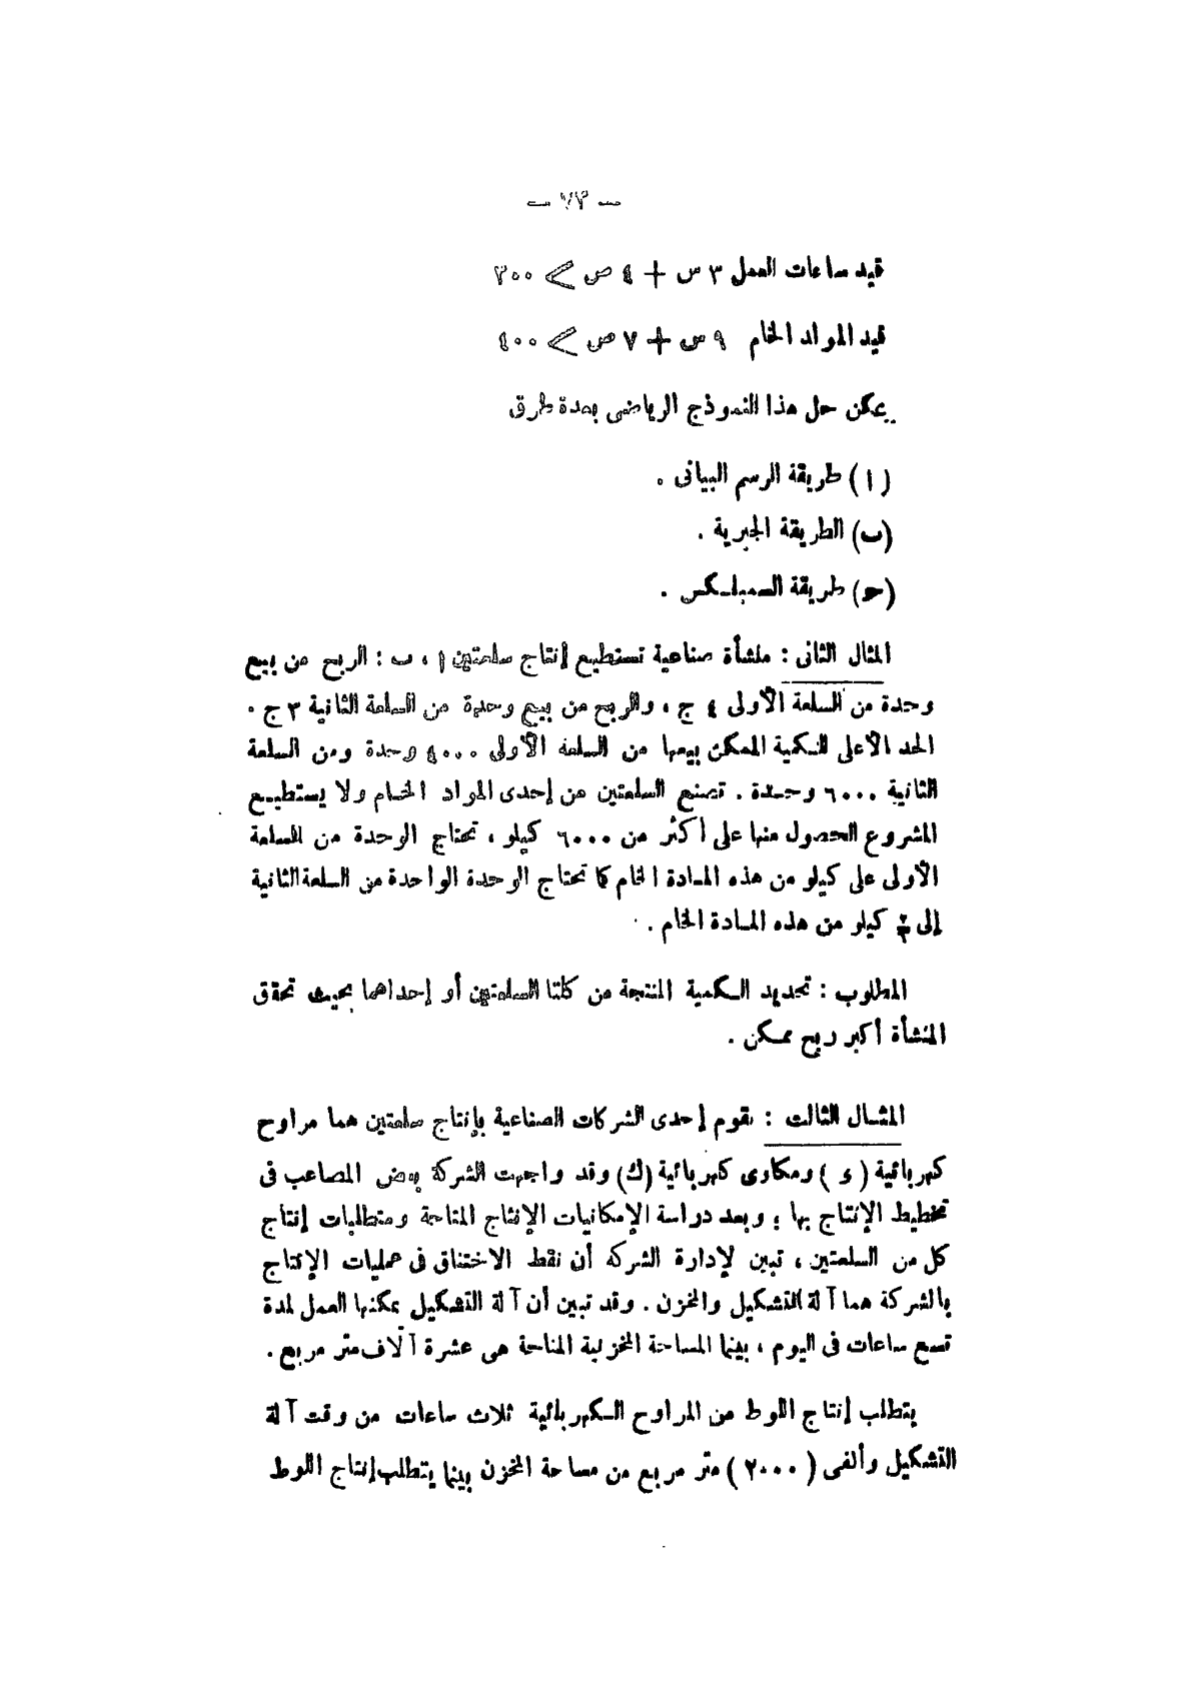 — ٧٣ —
قيد ساعات العمل ٣ س + ٤ ص ≥ ٢٠٠
قيد المواد الخام ٩ س + ٧ ص ≥ ٤٠٠
يمكن حل هذا النموذج الرياضى بعدة طرق
( ا ) طريقة الرسم البيانى .
(ب) الطريقة الجبرية .
(ح) طريقة السمبلكس .
المثال الثانى : منشأة صناعية تستطيع إنتاج سلعتين ا ، ب : الربح من بيع
وحدة من السلعة الأولى ٤ ج ، والربح من بيع وحدة من السلعة الثانية ٣ ج .
الحد الأعلى للكمية الممكن بيعها من السلعة الأولى ٤٠٠٠ وحدة ومن السلعة
الثانية ٦٠٠٠ وحدة . تصنع السلعتين من إحدى المواد الخام ولا يستطيع
المشروع الحصول منها على أكثر من ٦٠٠٠ كيلو ، تحتاج الوحدة من السلعة
الأولى على كيلو من هذه المادة الخام كما تحتاج الوحدة الواحدة من السلعة الثانية
إلى كيلو من هذه المادة الخام .
المطلوب : تحديد الكمية المنتجة من كلتا السلعتين أو إحداهما بحيث تحقق
المنشأة أكبر ربح ممكن .
المثال الثالث : تقوم إحدى الشركات الصناعية بإنتاج سلعتين هما مراوح
كهربائية ( و ) ومكاوى كهربائية (ك) وقد واجهت الشركة بعض المصاعب فى
تخطيط الإنتاج بها ؛ وبعد دراسة الإمكانيات الإنتاج المتاحة ومتطلبات إنتاج
كل من السلعتين ، تبين لإدارة الشركة أن نقط الاختناق فى عمليات الإنتاج
بالشركة هما آلة التشكيل والمخزن . وقد تبين أن آلة التشكيل يمكنها العمل لمدة
تسع ساعات فى اليوم ، بينما المساحة المخزنية المتاحة هى عشرة آلاف متر مربع .
يتطلب إنتاج اللوط من المراوح الكهربائية ثلاث ساعات من وقت آلة
التشكيل وألفى ( ٢٠٠٠ ) متر مربع من مساحة المخزن بينما يتطلب إنتاج اللوط